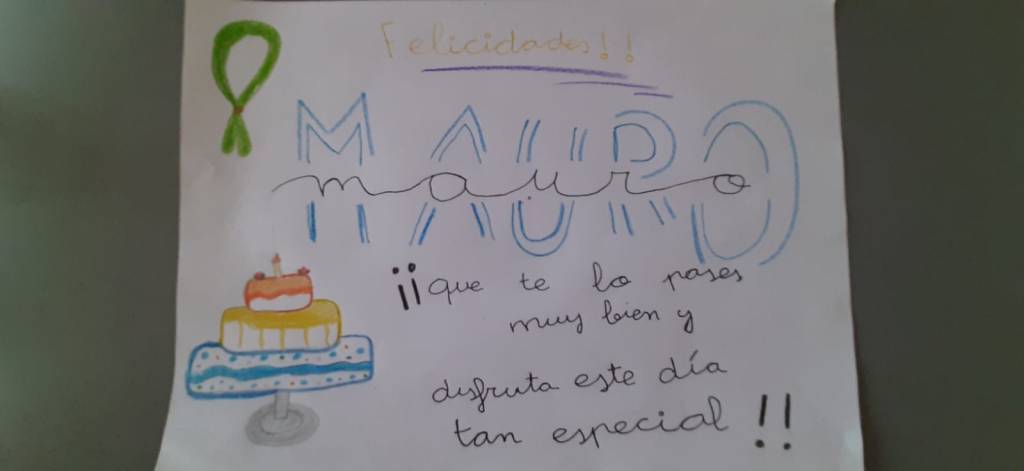 Felicidades!!
MAURO
mauro
¡¡que te lo pases
muy bien y
disfruta este día
tan especial!!